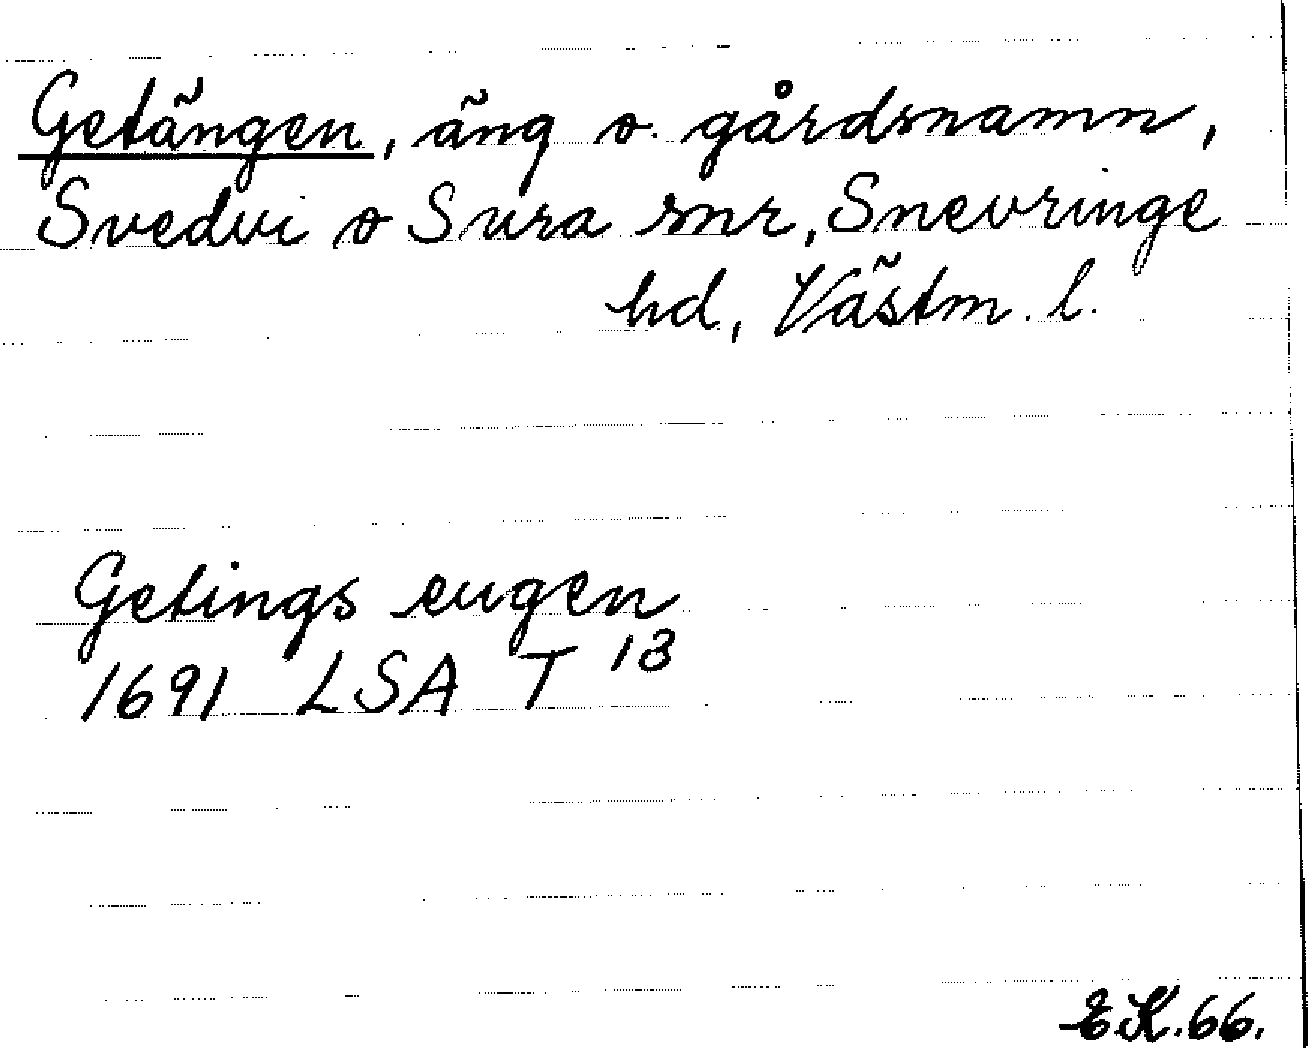 Getängen, äng o. gårdsnamn,
Svedvi o Sura snr, Snevringe
hd, Västm. l.
Getings engen
1691 LSA T 13
E.K. 66.